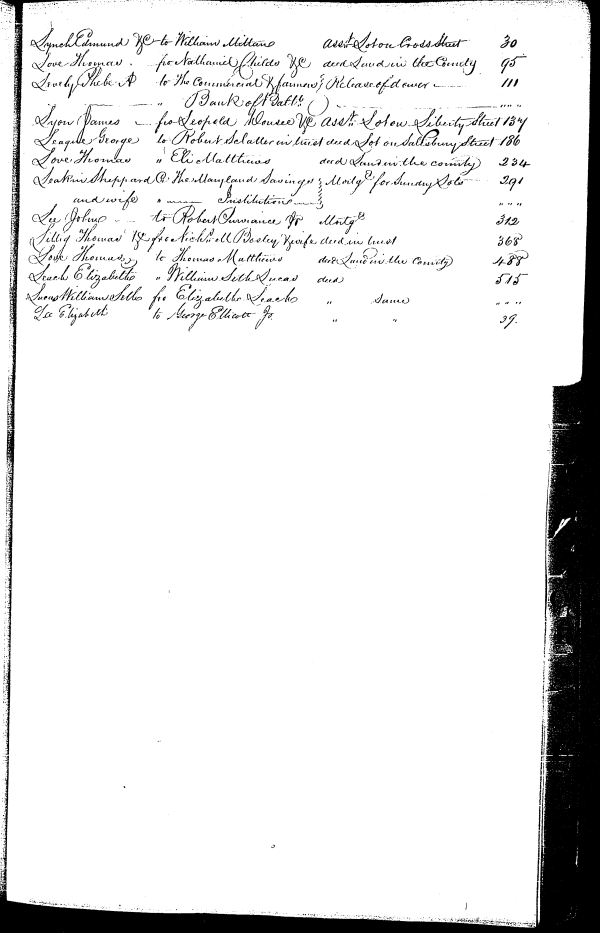 Lynch Edmund &C to William Mittane Asst. Lot on Cross Street 30
Love Thomas fro Nathaniel Childs &C deed Land in the County 95
Lovely Phebe A to The Commercial & farmers Release of dower 111
" Bank of Balto. " " "
Lyon James fro Leopold Mousee &C Asst. Lot on Liberty Street 137
League George to Robert Sclatter in trust deed Lot on Salisbury Street 186
Love Thomas " Eli Matthews deed Land in the county 234
Leakin Sheppard C. The Maryland Savings Mortge for Sunday Lots 291
and wife " Institution " " "
Lee John to Robert Purviance Jr Mortge 312
Lillig Thomas &C fro Nichs. M Bosley & wife deed in trust 368
Love Thomas to Thomas Matthews deed Land in the County 488
Leach Elizabeth " William Seth Lucas deed 515
Lucas William Seth fro Elizabeth Leach " Same " " "
Lee Elizabeth to George Ellicott Jr. " " 39.